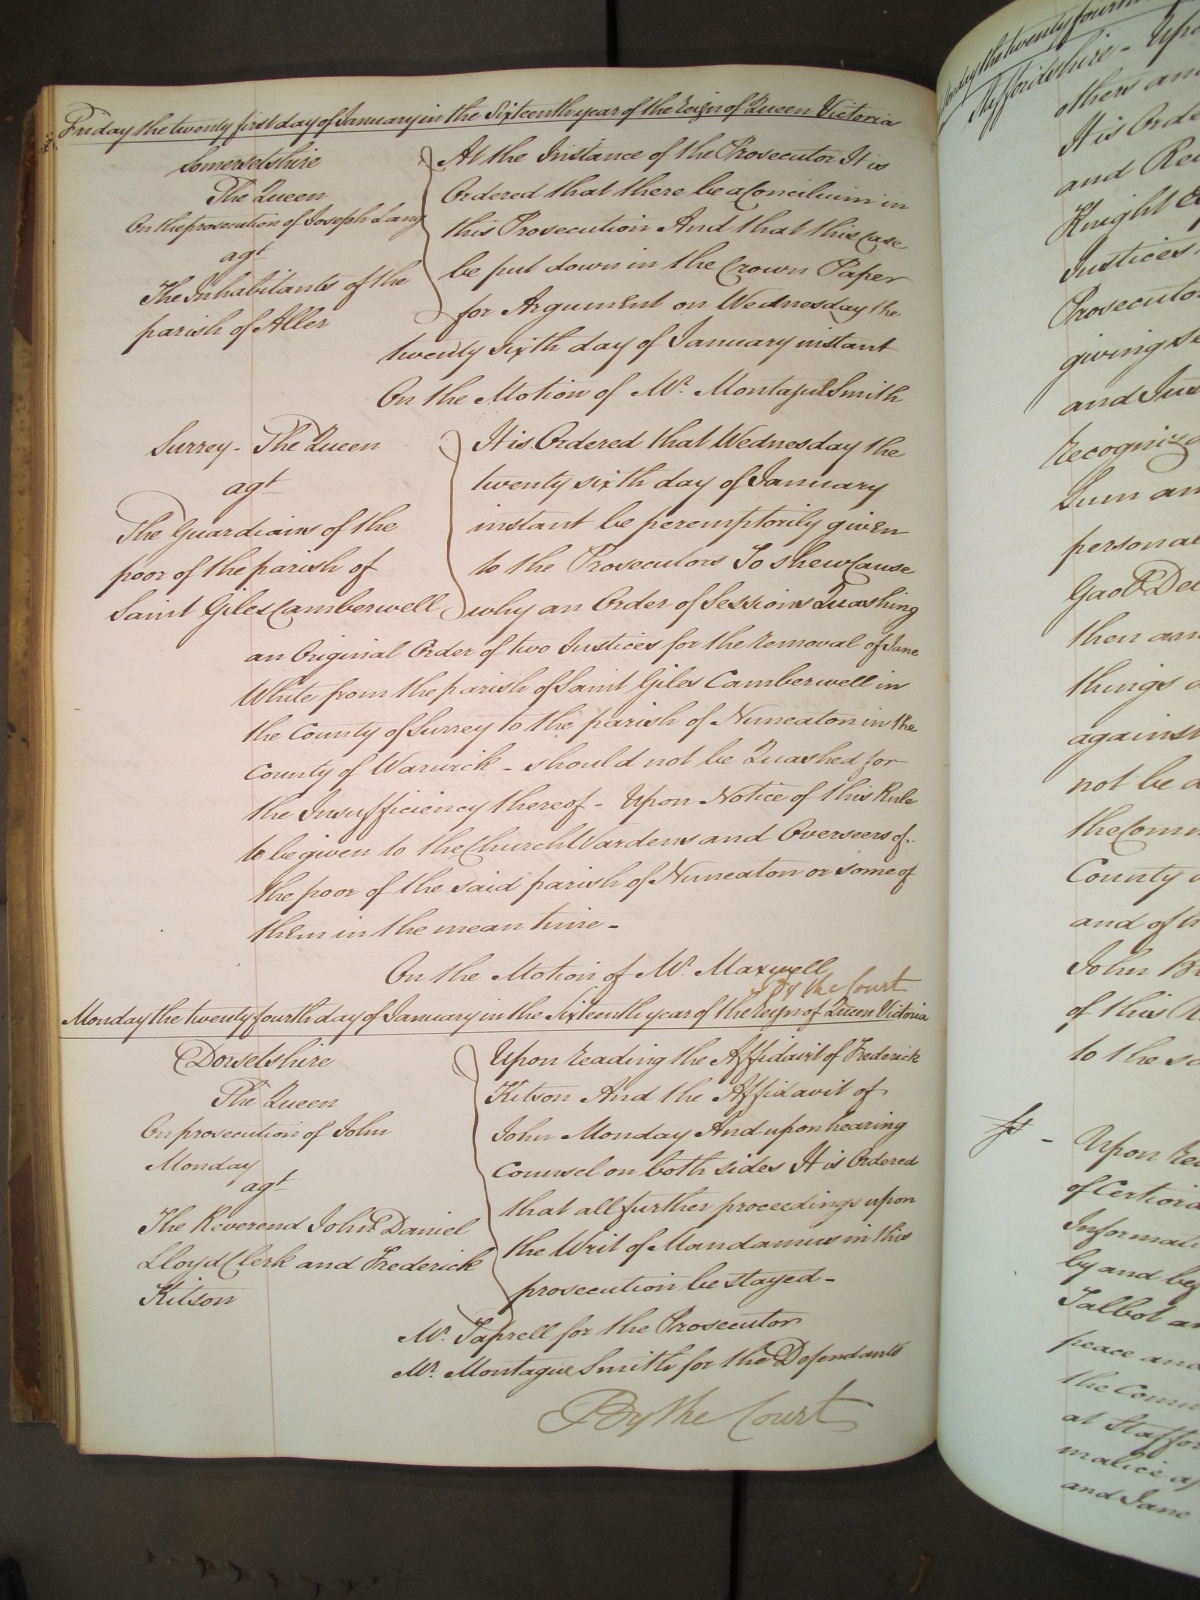 Friday the twenty first day of January in the Sixteenth year of the Reign of Queen Victoria
Somersetshire
The Queen
On the prosecution of Joseph Lang
agt
The Inhabitants of the
parish of Aller
At the Instance of the Prosecutor It is
Ordered that there be a Concilium in
this Prosecution And that this case
be put down in the Crown Paper
for Argument on Wednesday the
twenty sixth day of January instant
On the Motion of Mr. Montague Smith
Surrey - The Queen
agt
The Guardians of the
poor of the parish of
Saint Giles Camberwell
It is Ordered that Wednesday the
twenty sixth day of January
instant be peremptorily given
to the Prosecutors To shew Cause
why an Order of Sessions Quashing
an Original Order of two Justices for the removal of Jane
White from the parish of Saint Giles Camberwell in
the County of Surrey to the parish of Nuneaton in the
County of Warwick - should not be Quashed for
the Insufficiency thereof - Upon Notice of this Rule
to be given to the Church Wardens and Overseers of
the poor of the said parish of Nuneaton or some of
them in the mean time -
On the Motion of Mr. Maxwell
By the Court
Monday the twenty fourth day of January in the Sixteenth year of the Reign of Queen Victoria
Dorsetshire
The Queen
On prosecution of John
Monday
agt
The Reverend John Daniel
Lloyd Clerk and Frederick
Kitson
Upon reading the Affidavit of Frederick
Kitson And the Affidavit of
John Monday And upon hearing
Counsel on both sides It is Ordered
that all further proceedings upon
the Writ of Mandamus in this
prosecution be stayed -
Mr. Taprell for the Prosecutor
Mr. Montague Smith for the Defendants
By the Court
the twenty fourth
Staffordshire - Upon
others and
It is Orde
and Re
Knight
Justices
Prosecuto
giving
and Jus
Recogniz
Sum an
personal
Gaol De
then an
things
against
not be
the Comm
County
and of
John
of this
to the
Upon Re
of Certiora
Informat
by and be
Talbot
peace and
the Coun
at Staffor
malice
and Jane